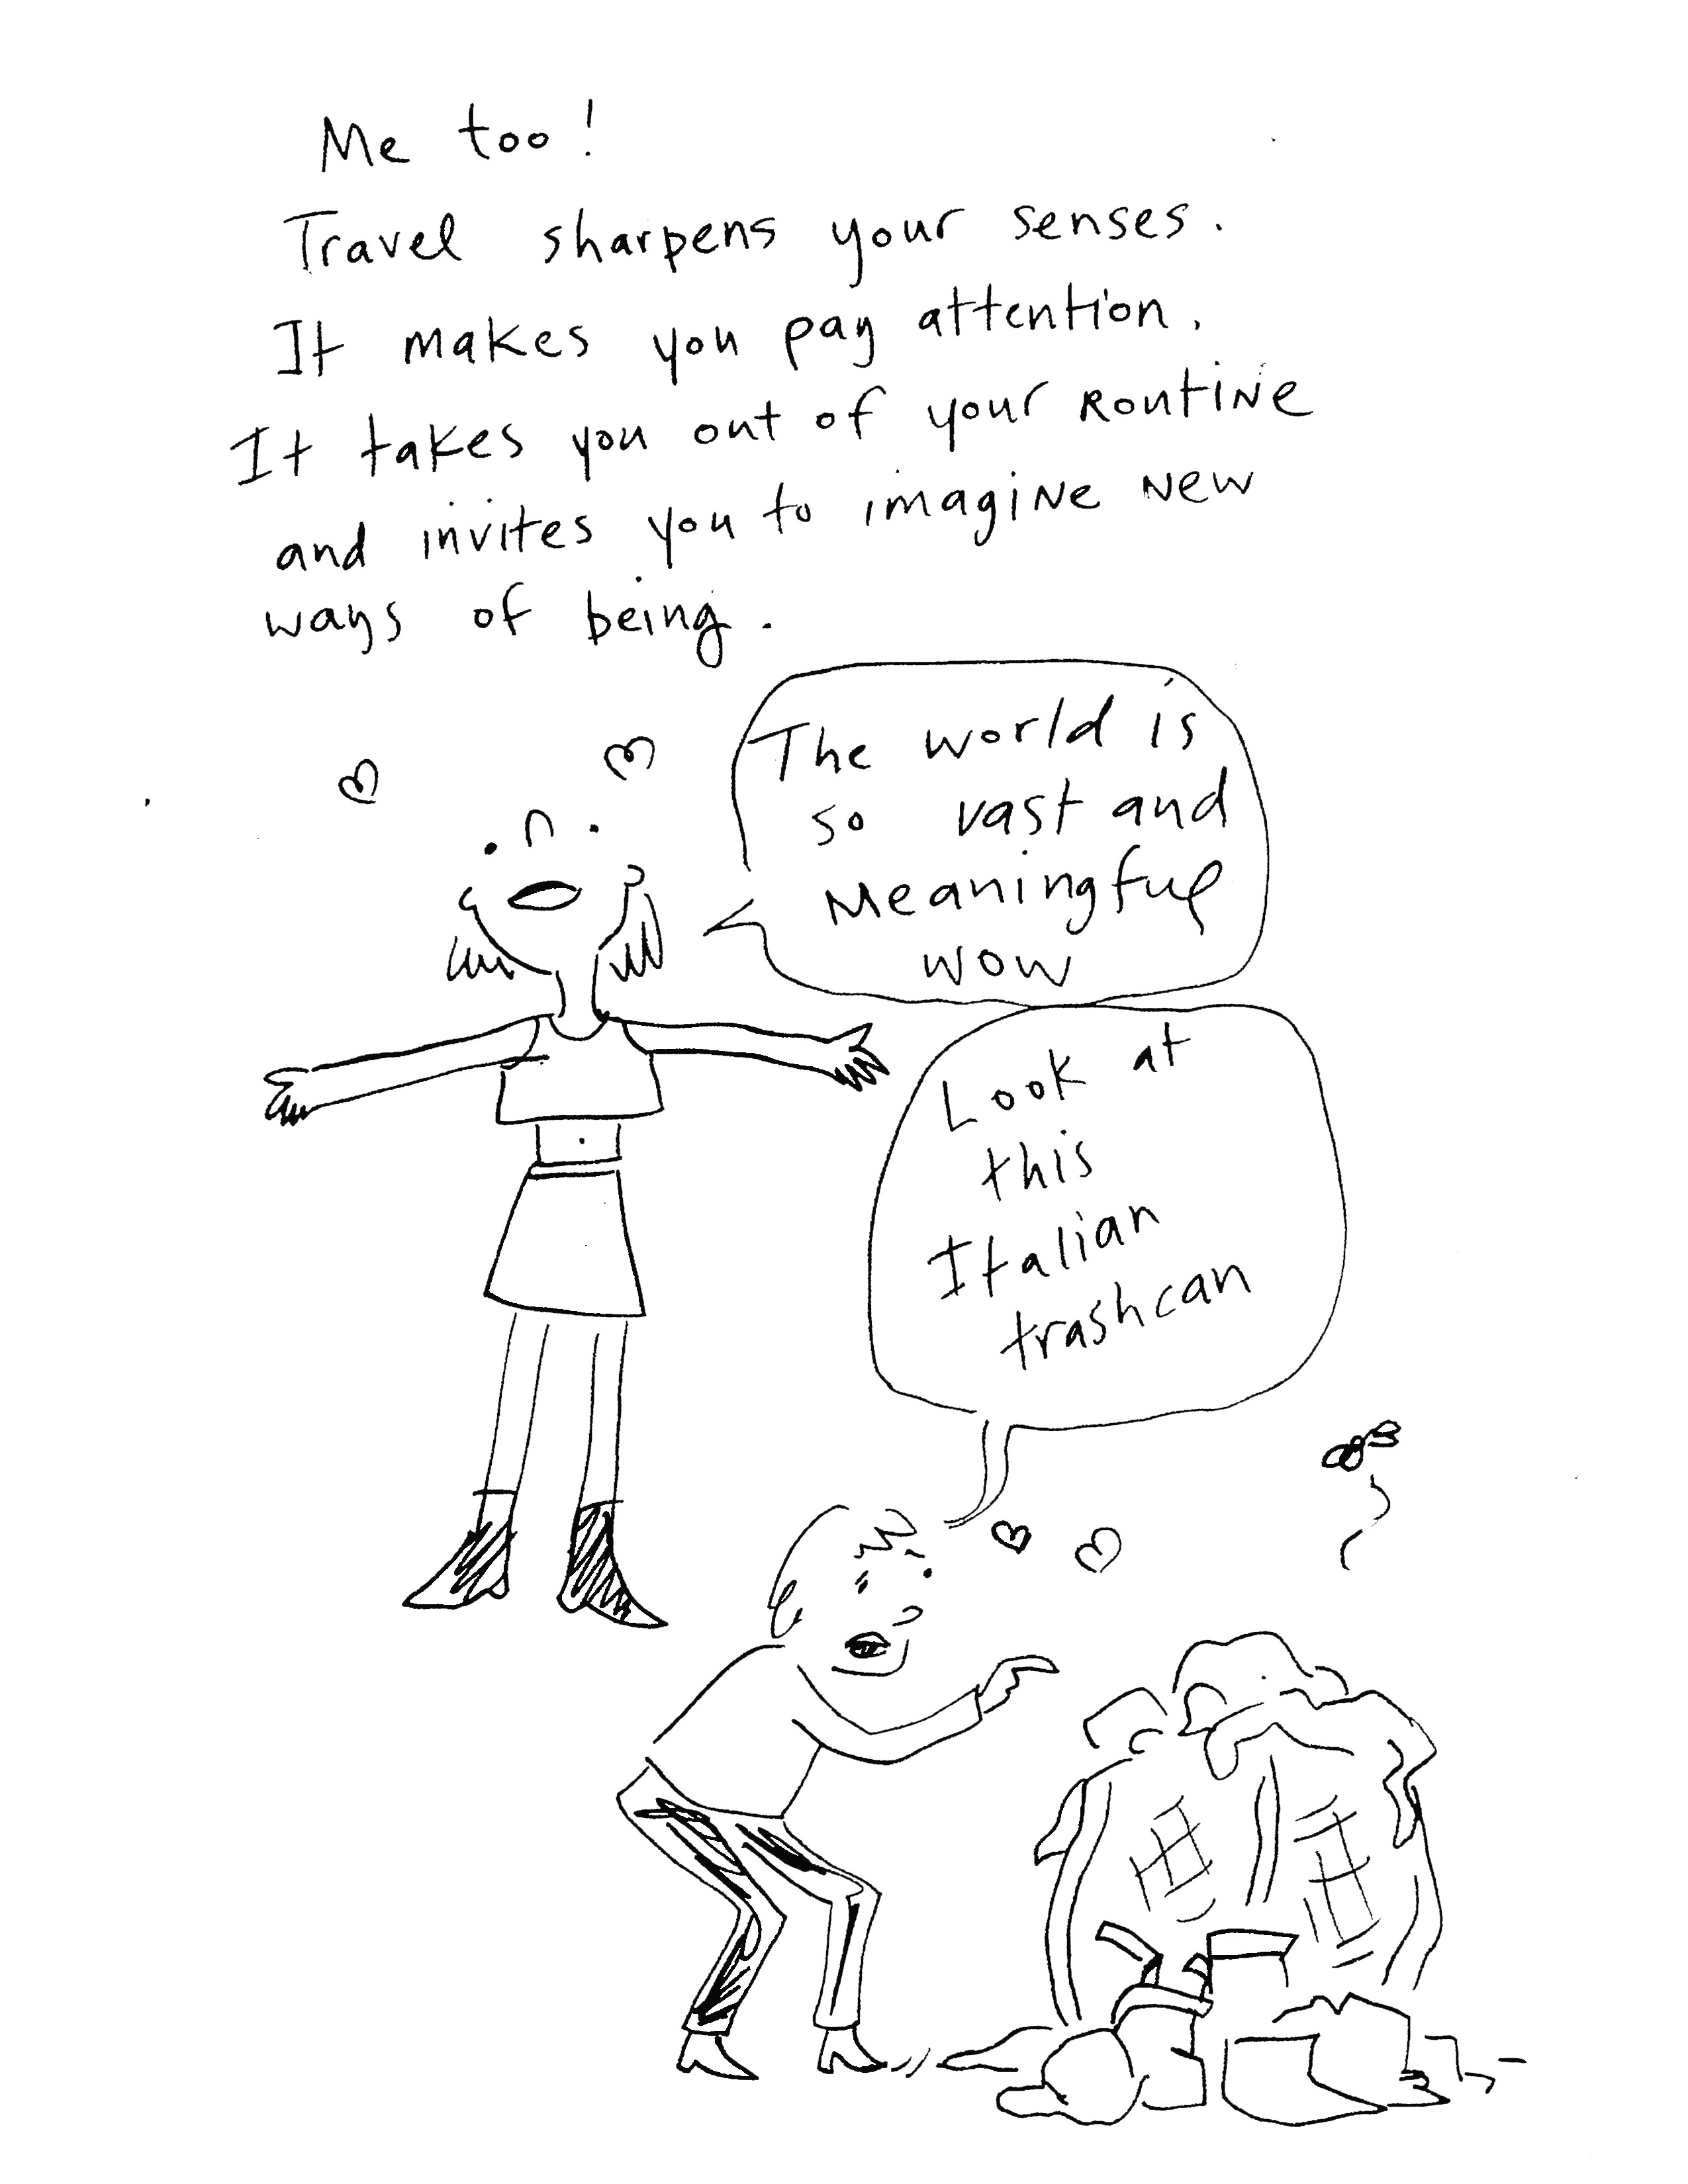 Me too!
Travel sharpens your senses.
It makes you pay attention.
It takes you out of your Routine
and invites you to imagine new
ways of being.
The world is
so vast and
Meaningful
wow
Look at
this
Italian
trashcan